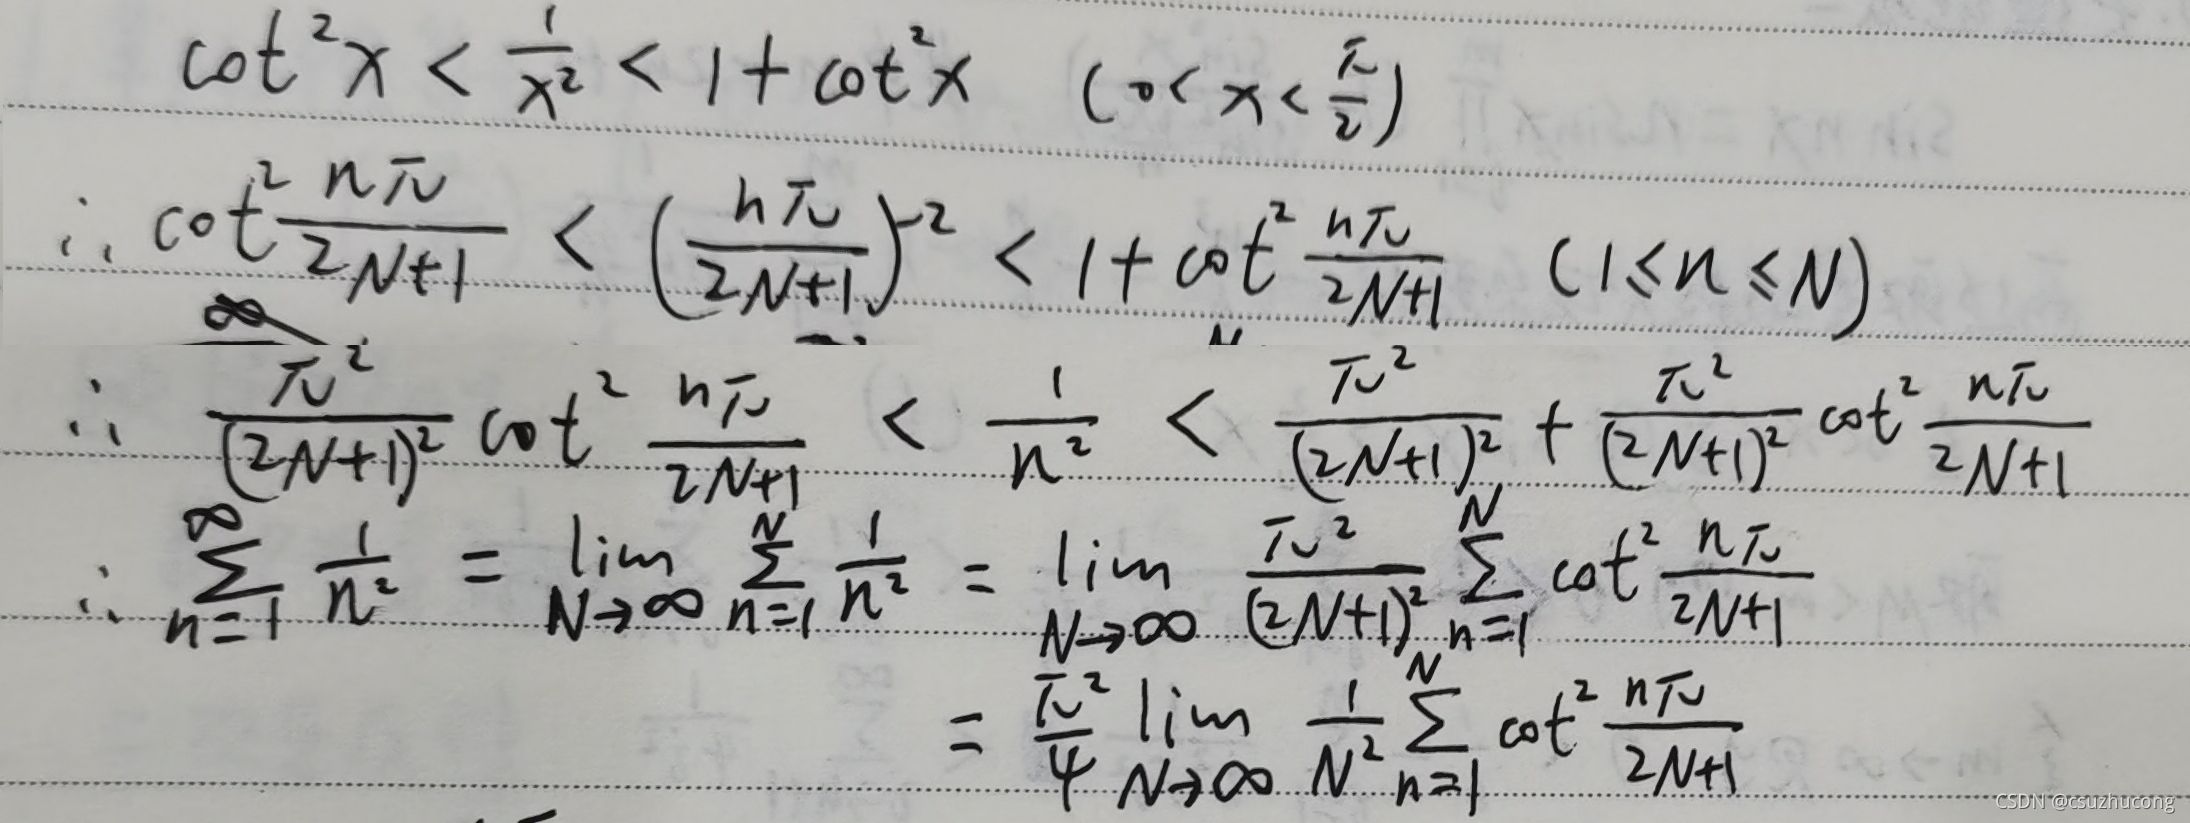 cot²x < 1/x² < 1 + cot²x (0 < x < π/2)
∴ cot² nπ/(2N+1) < (nπ/(2N+1))⁻² < 1 + cot² nπ/(2N+1) (1 ≤ n ≤ N)
∴ π²/(2N+1)² cot² nπ/(2N+1) < 1/n² < π²/(2N+1)² + π²/(2N+1)² cot² nπ/(2N+1)
∴ ∑_{n=1}^{∞} 1/n² = lim_{N→∞} ∑_{n=1}^{N} 1/n² = lim_{N→∞} π²/(2N+1)² ∑_{n=1}^{N} cot² nπ/(2N+1)
= π²/4 lim_{N→∞} 1/N² ∑_{n=1}^{N} cot² nπ/(2N+1)
CSDN @csuzhucong